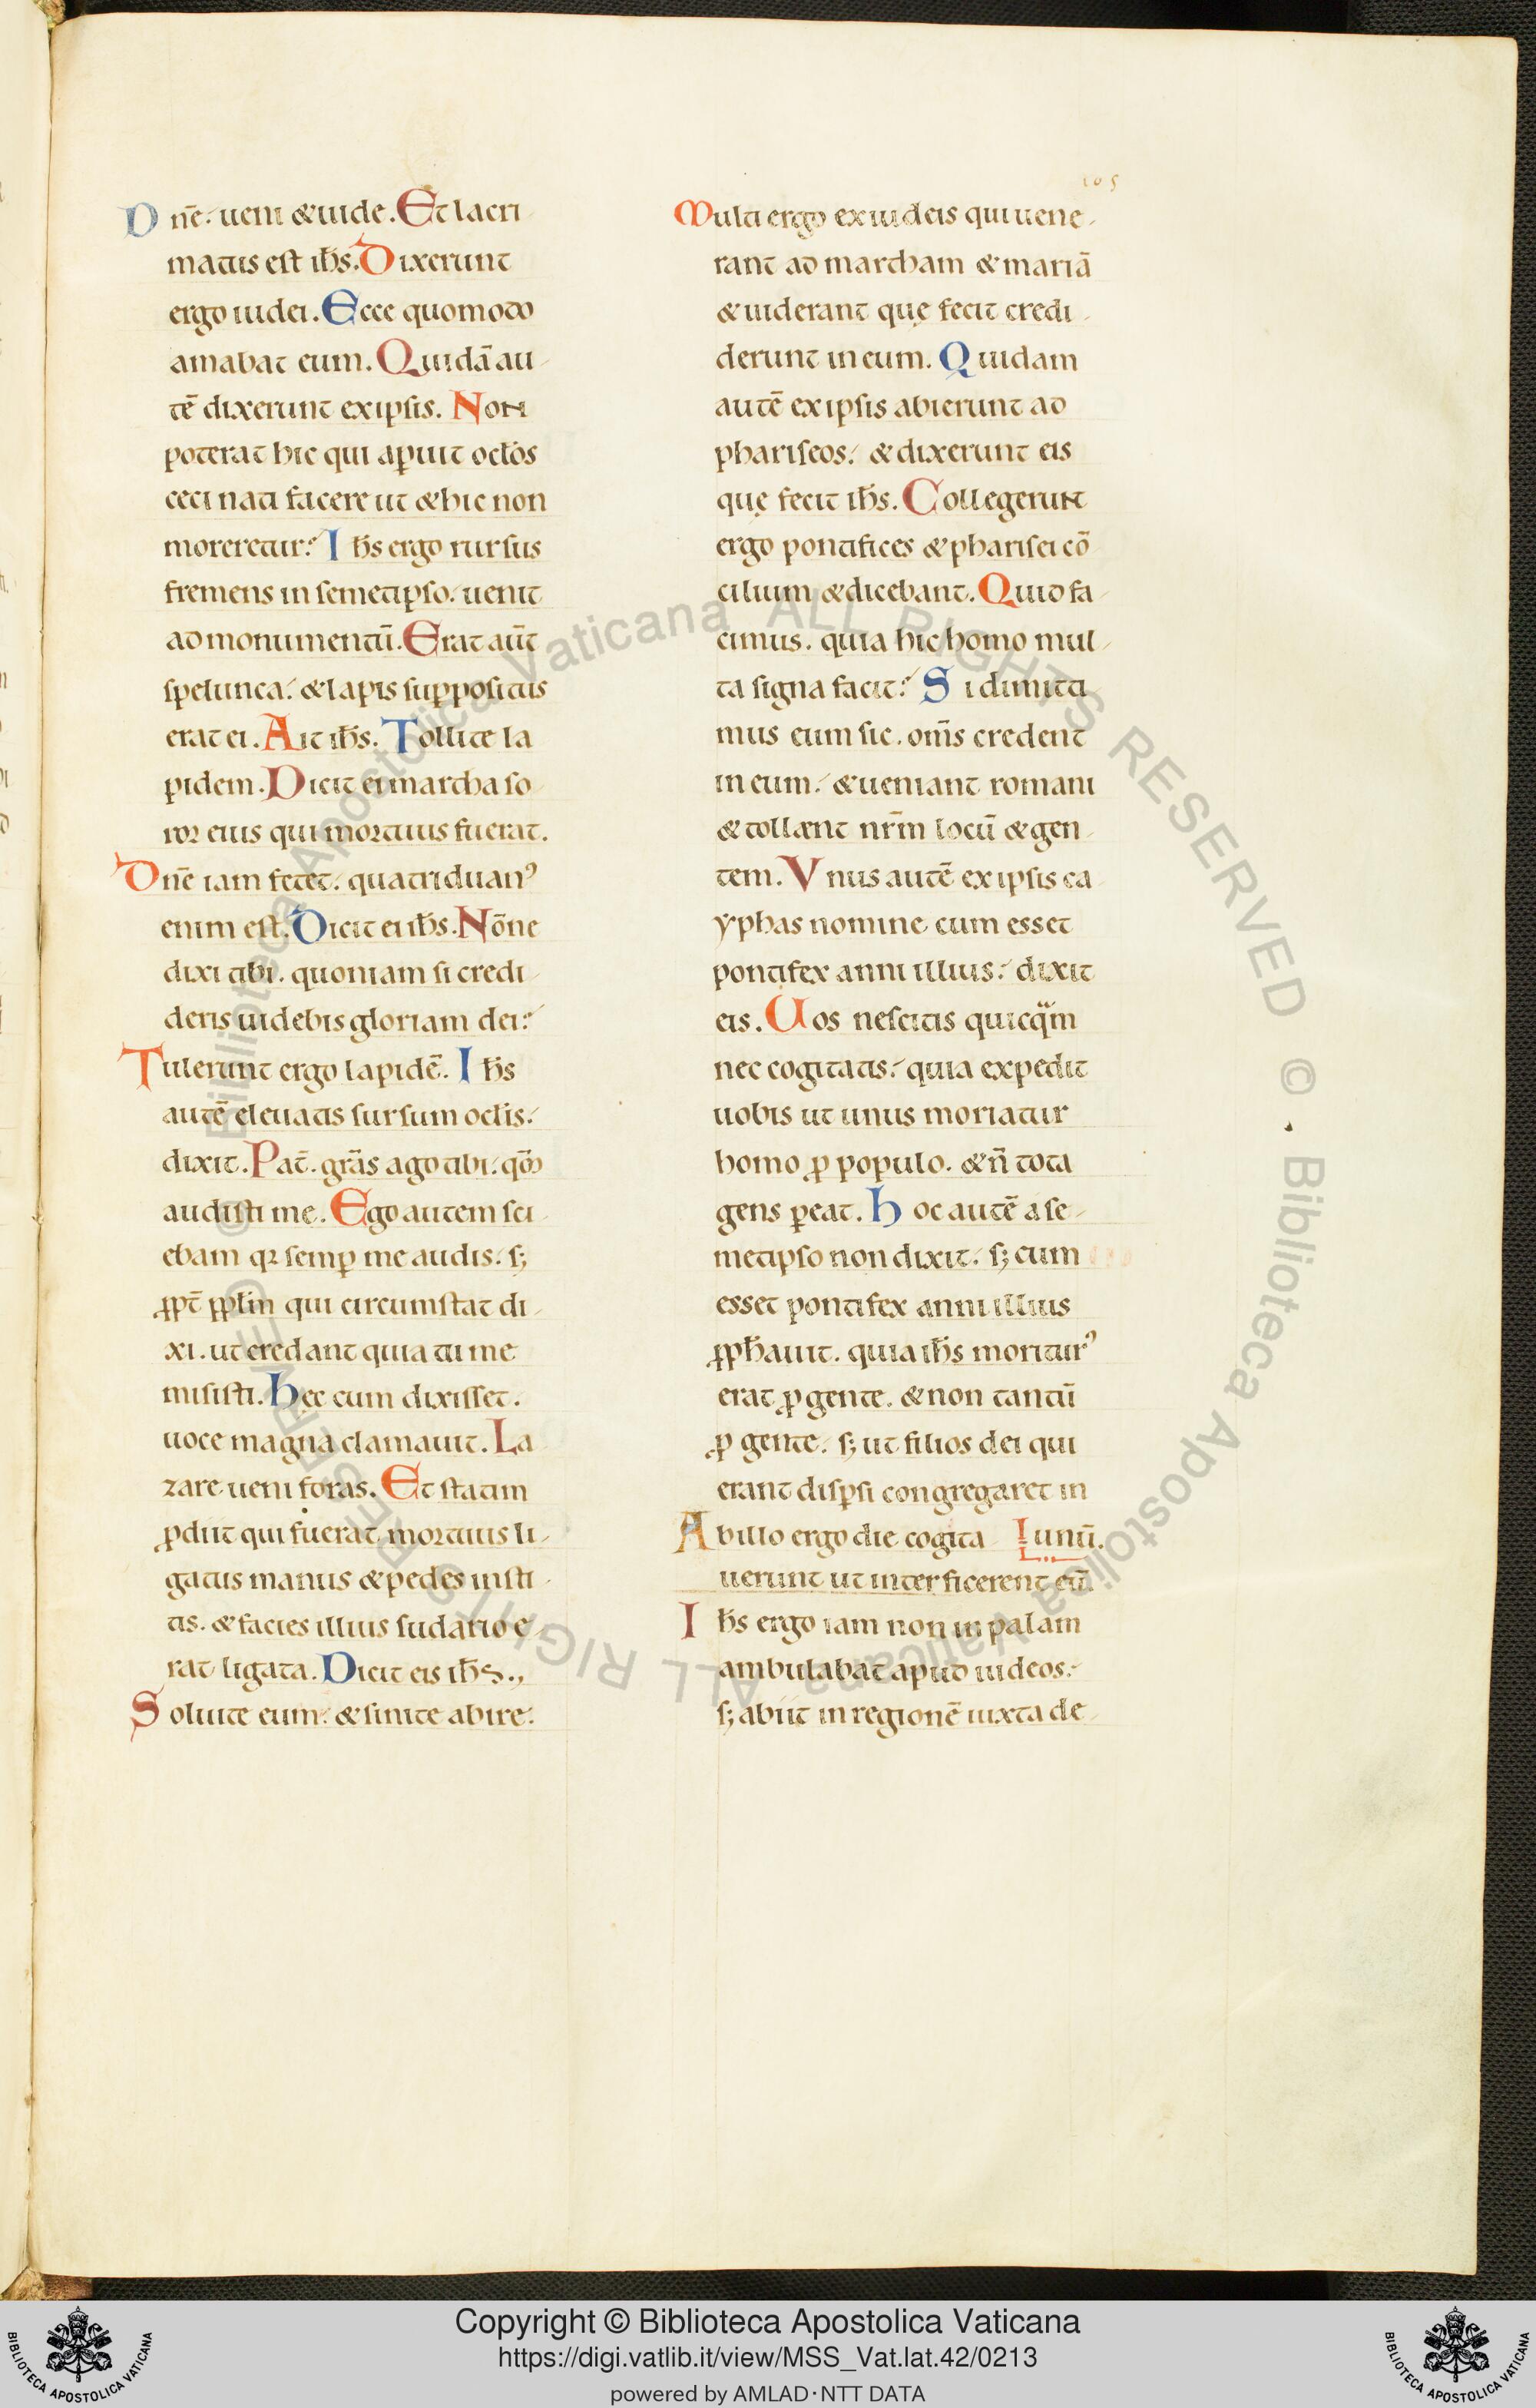 105
Dn̄e. ueni & uide. Et lacri
matus est ih̄s. Dixerunt
ergo iudei. Ecce quomodo
amabat eum. Quidā au
tē dixerunt ex ipsis. Non
poterat hic qui ap̲uit oc̄los
ceci nati facere ut & hic non
moreretur? Ih̄s ergo rursus
fremens in semetip̲so. uenit
ad monumentū. Erat aūt
spelunca. & lapis sup̲positus
erat ei. Ait ih̄s. Tollite la
pidem. Dicit ei martha so
ror eius qui mortuus fuerat.
Dn̄e iam fetet. quatriduanꝰ
enim est. Dicit ei ih̄s. Nōne
dixi tibi. quoniam si credi
deris uidebis gloriam dei?
Tulerunt ergo lapidē. Ih̄s
autē eleuatis sursum oc̄lis.
dixit. Pat̄. gr̄as ago tibi. qm̄
audisti me. Ego autem sci
ebam qꝛ semꝑ me audis. sꝫ
ꝓpt̄ pp̄lm̄ qui circumstat di
xi. ut credant quia tu me
misisti. Hęc cum dixisset.
uoce magna clamauit. La
zare ueni foras. Et statim
ꝓdiit qui fuerat mortuus li
gatus manus & pedes insti
tis. & facies illius sudario e
rat ligata. Dicit eis ih̄s.,
Soluite eum. & sinite abire.
Multi ergo ex iudeis qui uene
rant ad martham & mariā
& uiderant quę fecit credi
derunt in eum. Quidam
autē ex ipsis abierunt ad
phariseos. & dixerunt eis
quę fecit ih̄s. Collegerunt
ergo pontifices & pharisei cō
cilium & dicebant. Quid fa
cimus. quia hic homo mul
ta signa facit? Si dimitti
mus eum sic. om̄s credent
in eum. & uenient romani
& tollent nr̄m locū & gen
tem. Vnus autē ex ipsis ca
yphas nomine cum esset
pontifex anni illius. dixit
eis. Uos nescitis quicqᵃm
nec cogitatis. quia expedit
uobis ut unus moriatur
homo ꝓ populo. & n̄ tota
gens ꝑeat. Hoc autē a se
metipso non dixit. sꝫ cum
esset pontifex anni illius
ꝓph̄auit. quia ih̄s moriturꝰ
erat ꝓ gente. & non tantū
ꝓ gente. sꝫ ut filios dei qui
erant disꝑsi congregaret in
Ab illo ergo die cogita unū.
uerunt ut interficerent eū.
Ih̄s ergo iam non in palam
ambulabat apud iudeos.
sꝫ abiit in regionē iuxta de
© Biblioteca Apostolica Vaticana ALL RIGHTS RESERVED © Biblioteca Apostolica Vaticana ALL RIGHTS RESERVED
Copyright © Biblioteca Apostolica Vaticana
https://digi.vatlib.it/view/MSS_Vat.lat.42/0213
powered by AMLAD·NTT DATA
BIBLIOTECA APOSTOLICA VATICANA
BIBLIOTECA APOSTOLICA VATICANA